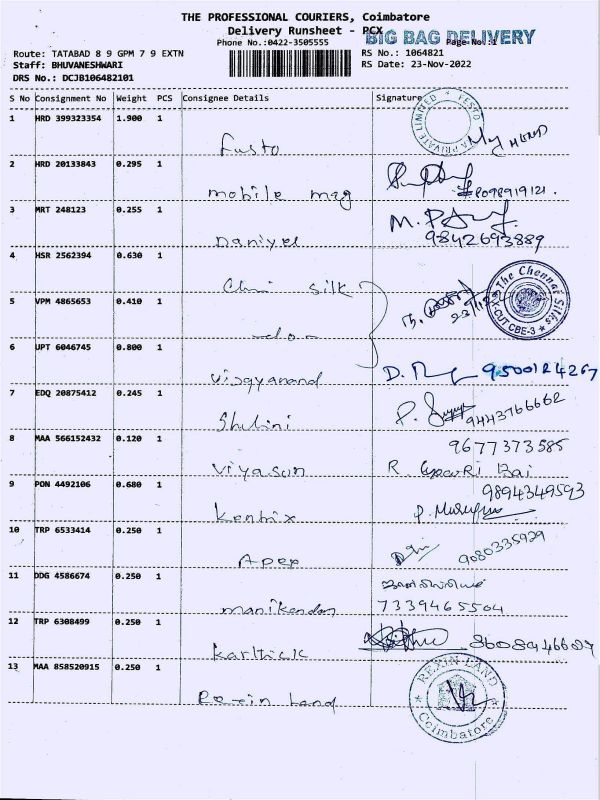 THE PROFESSIONAL COURIERS, Coimbatore
Delivery Runsheet - PCX
BIG BAG DELIVERY
Phone No.:0422-3505555
Page No.:1
Route: TATABAD 8 9 GPM 7 9 EXTN
RS No.: 1064821
Staff: BHUVANESHWARI
RS Date: 23-Nov-2022
DRS No.: DCJB106482101
S No Consignment No Weight PCS Consignee Details Signature
1 HRD 399323354 1.900 1
FESTO PRIVATE LIMITED
Festo
2 HRD 20133843 0.295 1
mobile mag 8098919121.
3 MRT 248123 0.255 1
Daniyel 9842693889
4 HSR 2562394 0.630 1
silk
The Chennai Silks
X-CUT CBE-3
5 VPM 4865653 0.410 1
-do-
6 UPT 6046745 0.800 1
D. 9500124267
7 EDQ 20875412 0.245 1
Shalini 9443766662
8 MAA 566152432 0.120 1
9677373585
R Bai
9 PON 4492106 0.680 1
9894349593
10 TRP 6533414 0.250 1
Apex 9080335929
11 DDG 4586674 0.250 1
manikandan 7339465504
12 TRP 6308499 0.250 1
Karthick
13 MAA 858520915 0.250 1
REXIN LAND
Coimbatore
Rexin Land